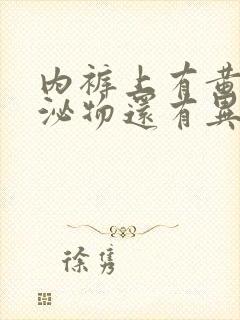 内裤上有黄
泌物还有异
徐隽